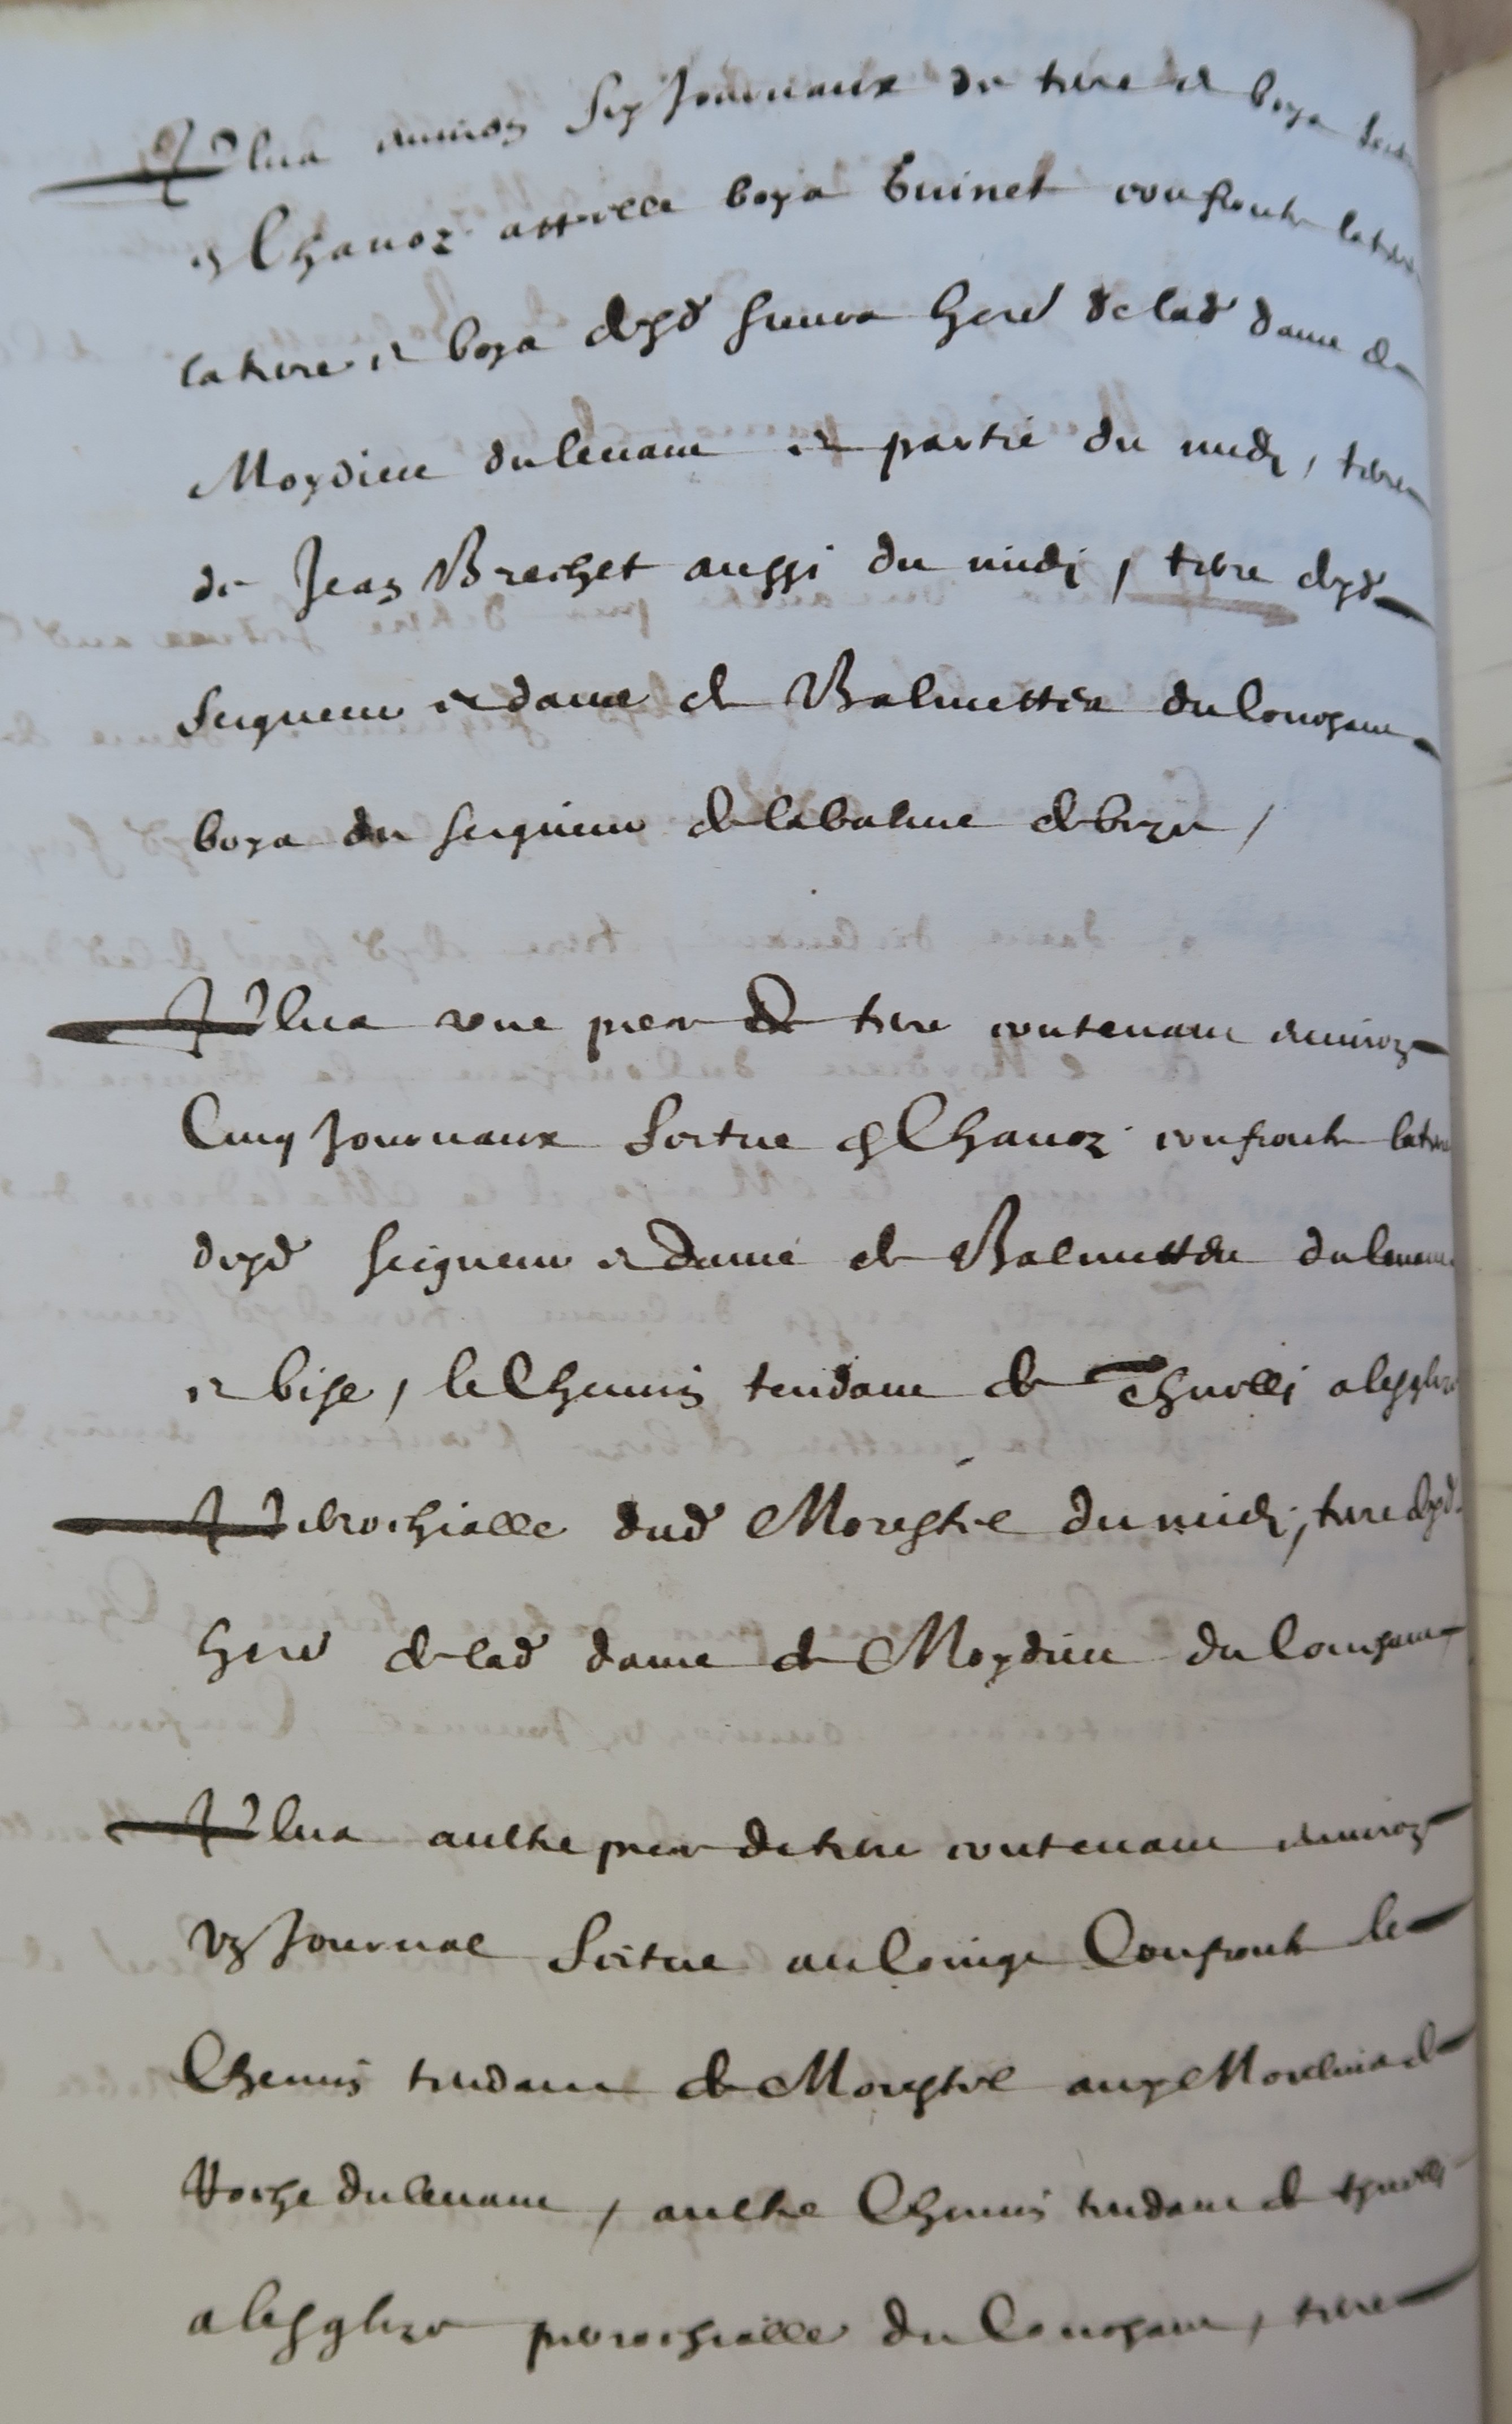 Plus environ six journaux de terre et boys scitu
en Chanoz appellé boys Guinet confronte la terre
la terre et boys desd sieurs heres de lad dame de
Moydieu du levant et partie du midy, terre
de Jean Brechet aussi du midi, terre desd
seigneur et dame de Balmettes du couchant
boys du seigneur de la balme de bize,
Plus une piece de terre contenant environ
Cinq journaux scitue en Chanoz confronte la terre
desd seigneur et dame de Balmettes du levant
et bise, le Chemin tendant de Thuelli a lesglize
Perrochialle dud Morestel du midi, terre desd
heres de lad dame de Moydieu du couchant
Plus aultre piece de terre contenant environ
un journal scitue au Confronte le
Chemin tendant de Morestel aux de
Roche du levant, aultre Chemin tendant de thuelli
a lesglize perrochialle du Couchant, terre